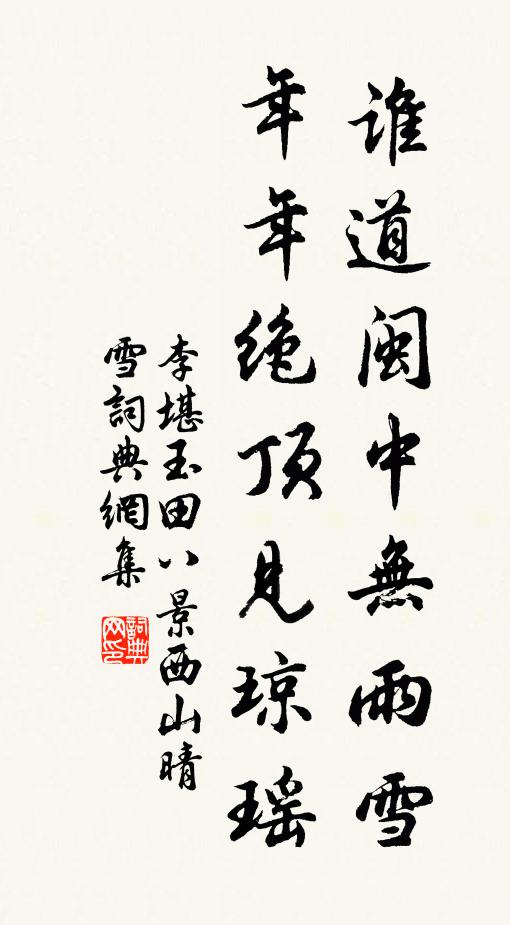 谁道闽中無雨雪
年年绝顶見琼瑶
李堪玉田八景西山晴
雪詞典網集
詞典网印